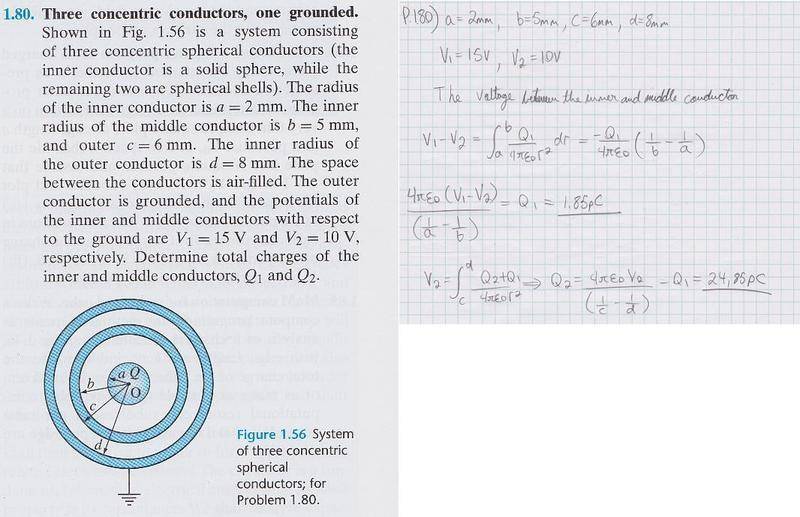 1.80. Three concentric conductors, one grounded.
Shown in Fig. 1.56 is a system consisting
of three concentric spherical conductors (the
inner conductor is a solid sphere, while the
remaining two are spherical shells). The radius
of the inner conductor is a = 2 mm. The inner
radius of the middle conductor is b = 5 mm,
and outer c = 6 mm. The inner radius of
the outer conductor is d = 8 mm. The space
between the conductors is air-filled. The outer
conductor is grounded, and the potentials of
the inner and middle conductors with respect
to the ground are V₁ = 15 V and V₂ = 10 V,
respectively. Determine total charges of the
inner and middle conductors, Q₁ and Q₂.
a Q
b
O
c
d
Figure 1.56 System
of three concentric
spherical
conductors; for
Problem 1.80.
P.180) a = 2mm, b=5mm, C=6mm, d=8mm
V₁ = 15V, V₂ = 10V
The Valtage between the inner and middle conductor
V₁ - V₂ = ∫_a^b Q₁/(4πε₀r²) dr = -Q₁/(4πε₀) (1/b - 1/a)
4πε₀ (V₁-V₂)/(1/a - 1/b) = Q₁ = 1.85pC
V₂ = ∫_c^d (Q₂+Q₁)/(4πε₀r²) ⇒ Q₂ = 4πε₀V₂/(1/c - 1/d) - Q₁ = 24,85pC